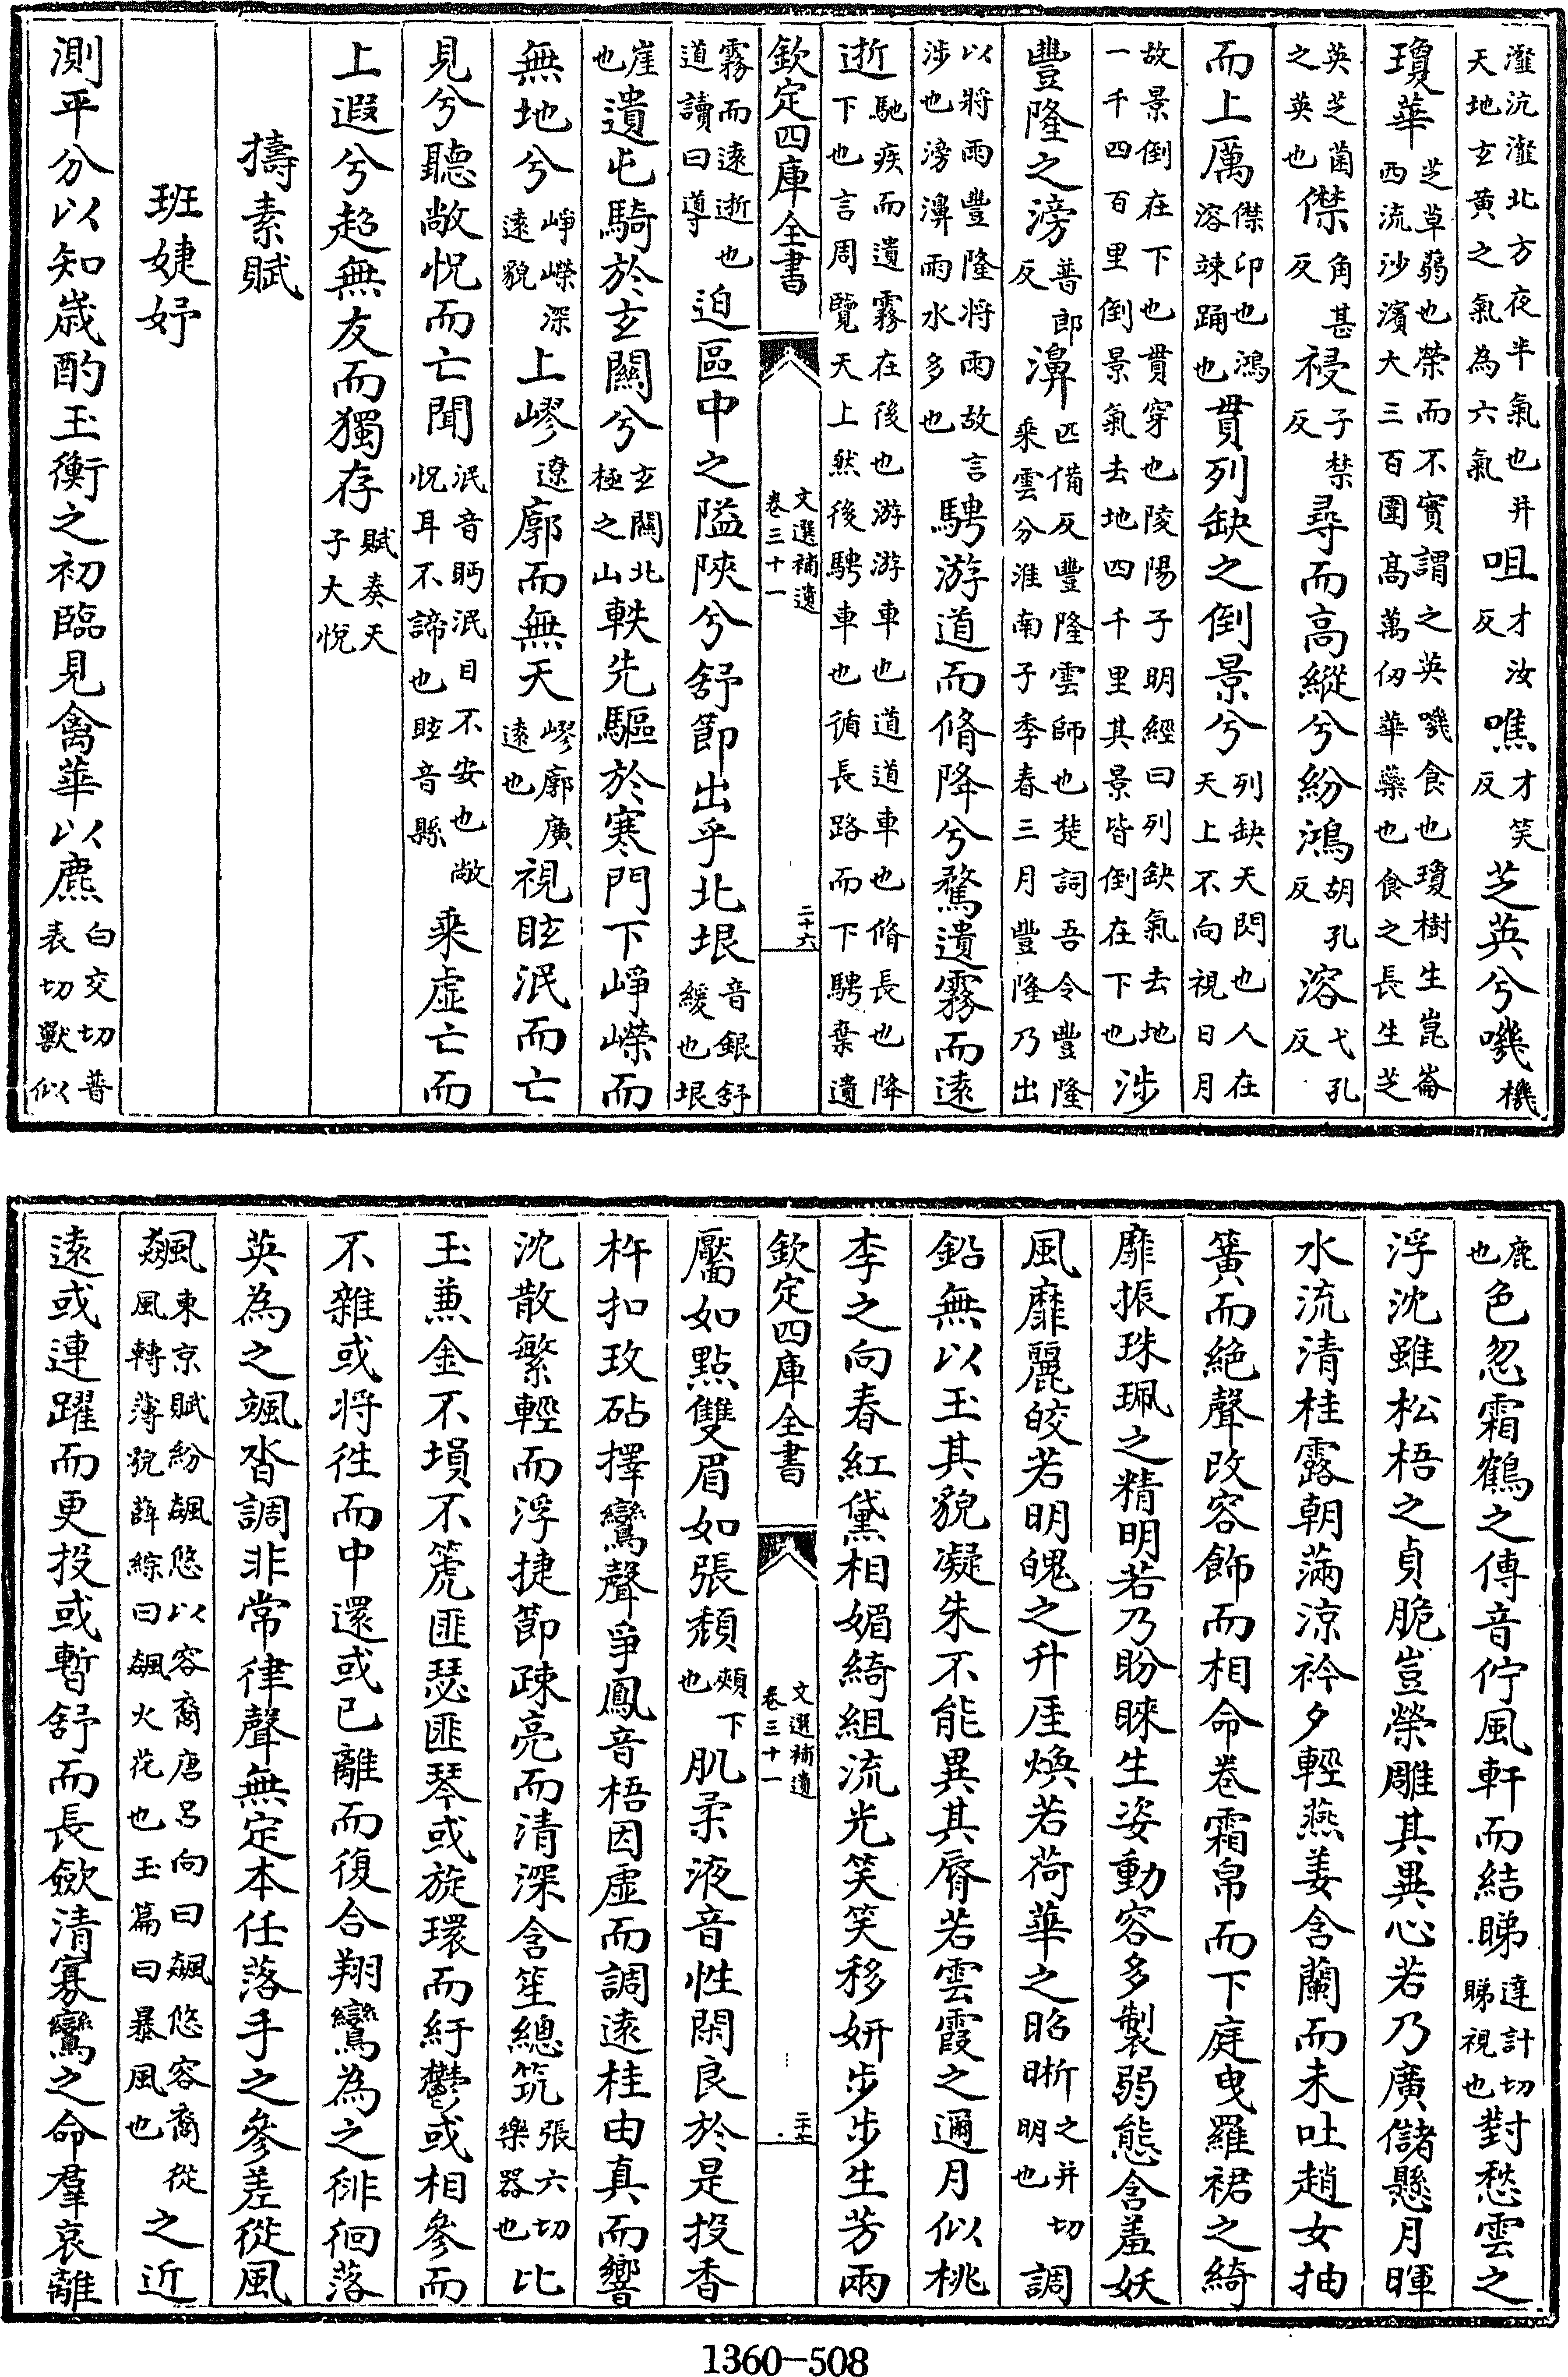 瀣沆瀣北方夜半氣也并天地玄黄之氣為六氣咀才汝反噍才笑反芝英兮嘰機
瓊華芝草蒻也榮而不實謂之英嘰食也瓊樹生崑崙西流沙濱大三百圍髙萬仞華蘂也食之長生芝
英芝菌之英也傑角甚反祲子禁反尋而高縱兮紛鴻胡孔反溶弋孔反
而上厲傑卬也鴻溶竦踊也貫列缺之倒景兮列缺天閃也人在天上不向視日月
故景倒在下也貫穿也陵陽子明經曰列缺氣去地一千四百里倒景氣去地四千里其景皆倒在下也涉
豐隆之滂普郎反濞匹備反豐隆雲師也楚詞吾令豐隆乘雲分淮南子季春三月豐隆乃出
以將雨豐隆将雨故言涉也滂濞雨水多也騁游道而脩降兮騖遺霧而逺
逝馳疾而遺霧在後也游游車也道道車也脩長也降下也言周覽天上然後騁車也循長路而下騁棄遺
欽定四庫全書
文選補遺
卷三十一
二十六
霧而逺逝也道讀曰導迫區中之隘陜兮舒節出乎北垠音銀舒緩也垠
崖也遺屯騎於玄闕兮玄闕北極之山軼先驅於寒門下崢嶸而
無地兮崢嶸深逺貌上嵺遼廓而無天嵺廓廣逺也視眩泯而亡
見兮聽敞怳而亡聞泯音眄泯目不安也敞怳耳不諦也眩音縣乘虚亡而
上遐兮超無友而獨存賦奏天子大悅
擣素賦
班婕妤
測平分以知嵗酌玉衡之初臨見禽華以麃白交切普表切獸似
鹿也色忽霜鶴之傳音佇風軒而結睇達計切睇視也對愁雲之
浮沈雖松梧之貞脆豈榮雕其異心若乃廣儲懸月暉
水流清桂露朝滿涼衿夕輕燕姜含蘭而未吐趙女抽
簧而絶聲改容飾而相命卷霜帛而下庭曳羅裙之綺
靡振珠珮之精明若乃盼睞生姿動容多製弱態含羞妖
風靡麗皎若明魄之升厓煥若荷華之昭晰之并切明也調
鉛無以玉其貌凝朱不能異其脣若雲霞之邇月似桃
李之向春紅黛相媚綺組流光笑笑移妍步步生芳兩
欽定四庫全書
文選補遺
卷三十一
二十七
靨如點雙眉如張頽頰下也肌柔液音性閑良於是投香
杵扣玫砧擇鸞聲爭鳳音梧因虚而調逺桂由真而響
沈散繁輕而浮捷節疎亮而清深含笙總筑張六切樂器也比
玉兼金不塤不箎匪瑟匪琴或旋環而紆鬱或相參而
不雜或将徃而中還或已離而復合翔鸞為之徘徊落
英為之颯沓調非常律聲無定本任落手之參差從風
飈風東京賦紛飊悠以容裔唐吕向曰飊悠容裔從風轉薄貌薛綜曰飊火花也玉篇曰暴風也之近
逺或連躍而更投或暫舒而長斂清寡鸞之命羣哀離
1360—508